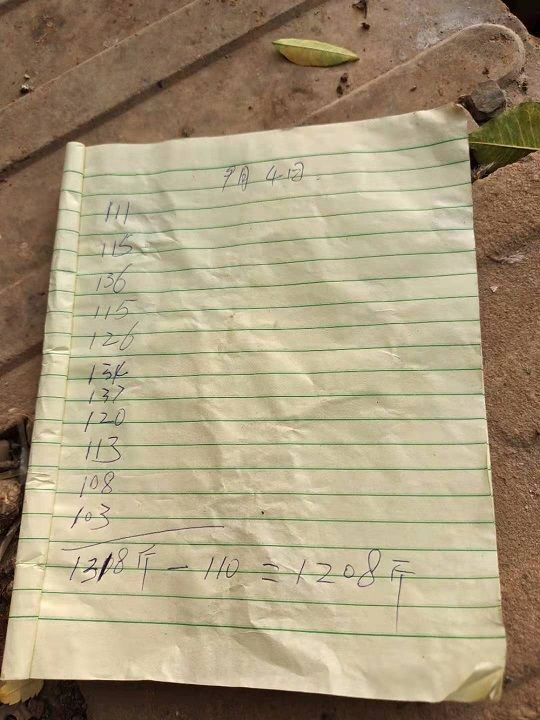 9月4日.
111
115
136
115
126
134
137
120
113
108
103
1318斤-110=1208斤